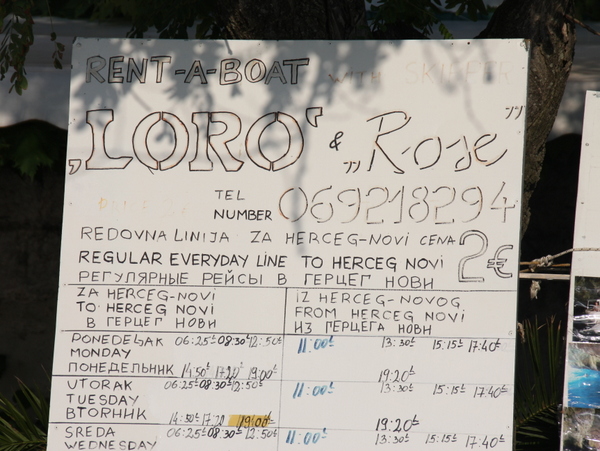 RENT-A-BOAT WITH SKIPPER
‚LORO‘ & „Rose”
TEL
NUMBER 069218294
REDOVNA LINIJA ZA HERCEG-NOVI CENA 2€
REGULAR EVERYDAY LINE TO HERCEG NOVI
РЕГУЛЯРНЫЕ РЕЙСЫ В ГЕРЦЕГ НОВИ
ZA HERCEG-NOVI
TO HERCEG NOVI
В ГЕРЦЕГ НОВИ
IZ HERCEG-NOVOG
FROM HERCEG NOVI
ИЗ ГЕРЦЕГА НОВИ
PONEDELJAK 06:25 08:30 12:50
MONDAY
ПОНЕДЕЛЬНИК 14:50 17:20 19:00
11:00 13:30 15:15 17:40
19:20
UTORAK 06:25 08:30 12:50
TUESDAY
ВТОРНИК 14:50 17:20 19:00
11:00 13:30 15:15 17:40
19:20
SREDA 06:25 08:30 12:50
WEDNESDAY
11:00 13:30 15:15 17:40